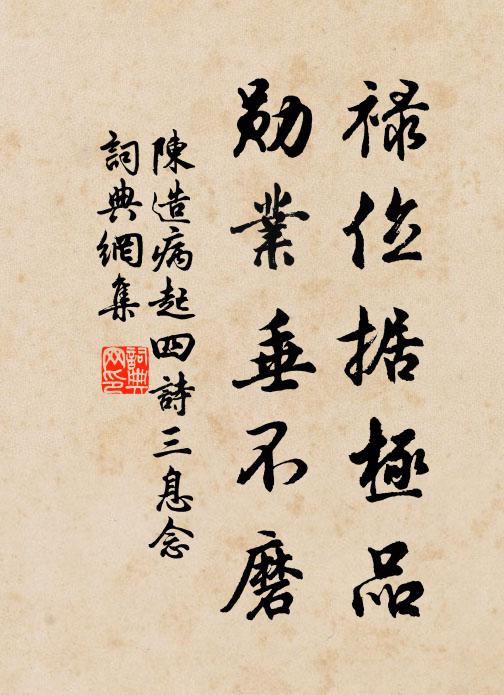 禄位据極品
勛業垂不磨
陳造病起四詩三息念
詞典網集
詞典網印